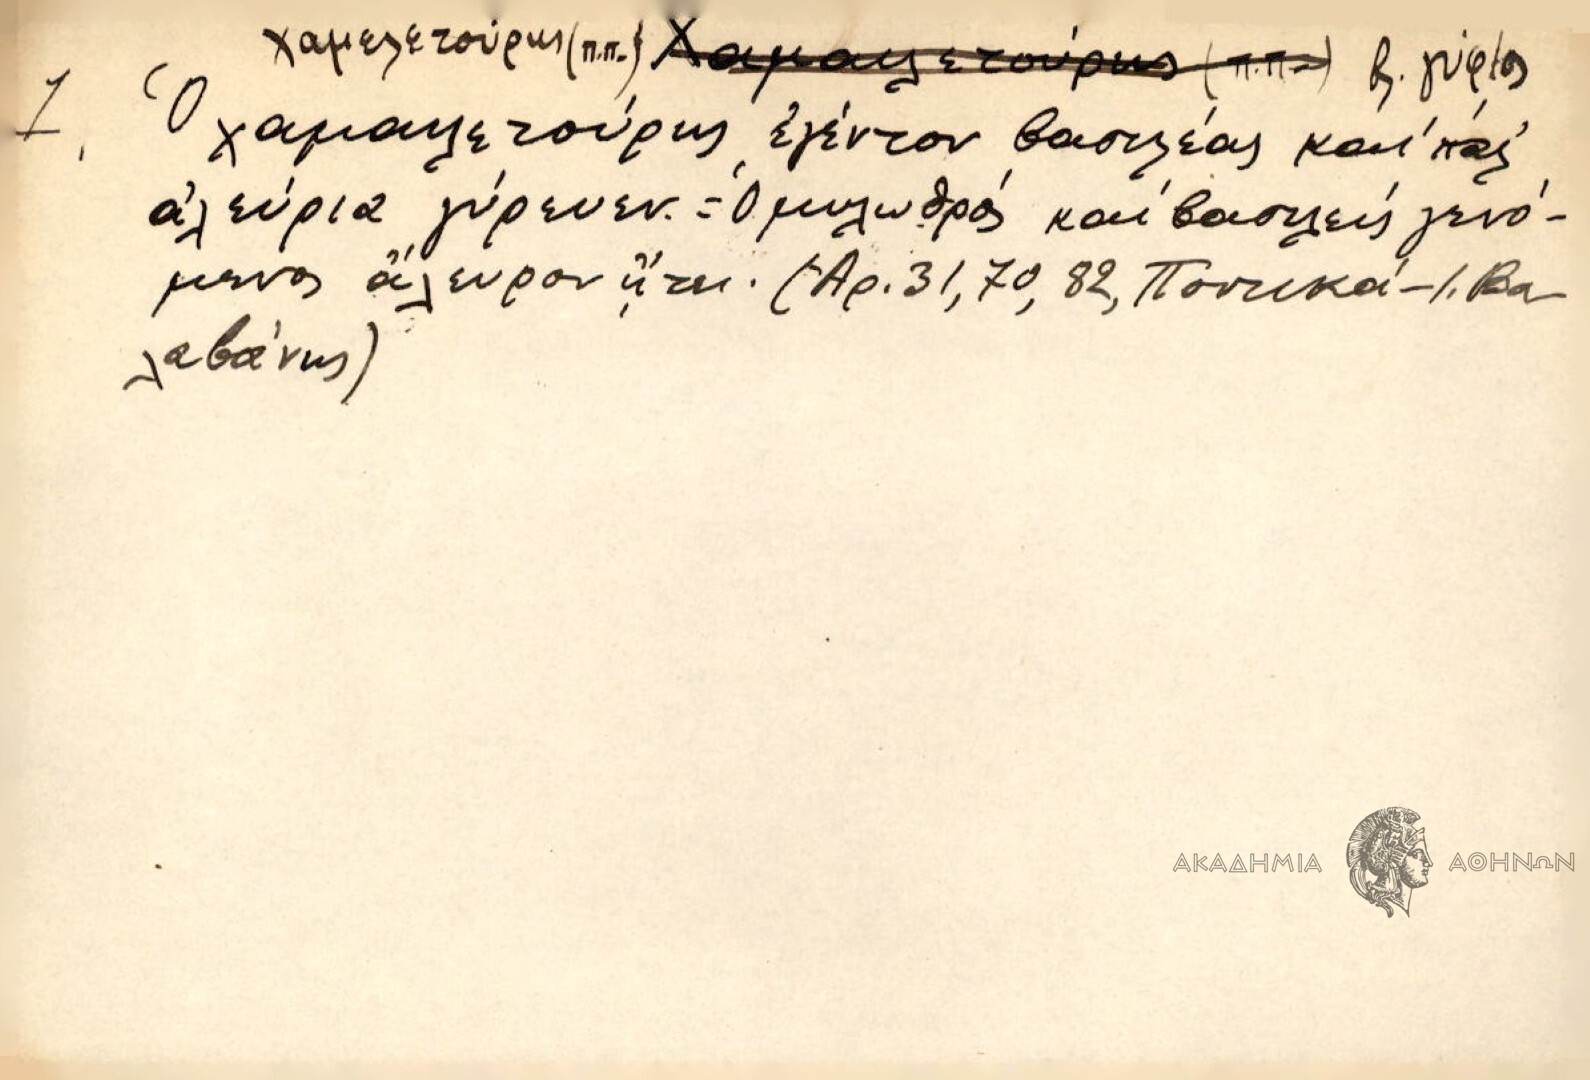 χαμελετούρης (π.π.) Χαμαιλετούρης (π.π.) βλ. γύφτος
1. Ὁ χαμαιλετούρης ἐγέντον βασιλέας καὶ πάλ'
ἀλεύρια γύρευεν. = Ὁ μυλωθρός καὶ βασιλεύς γενό-
μενος ἄλευρον ᾔτει. (Ἀρ. 31, 70, 82, Ποντικά - Ι. Βα-
λαβάνης)
ΑΚΑΔΗΜΙΑ ΑΘΗΝΩΝ